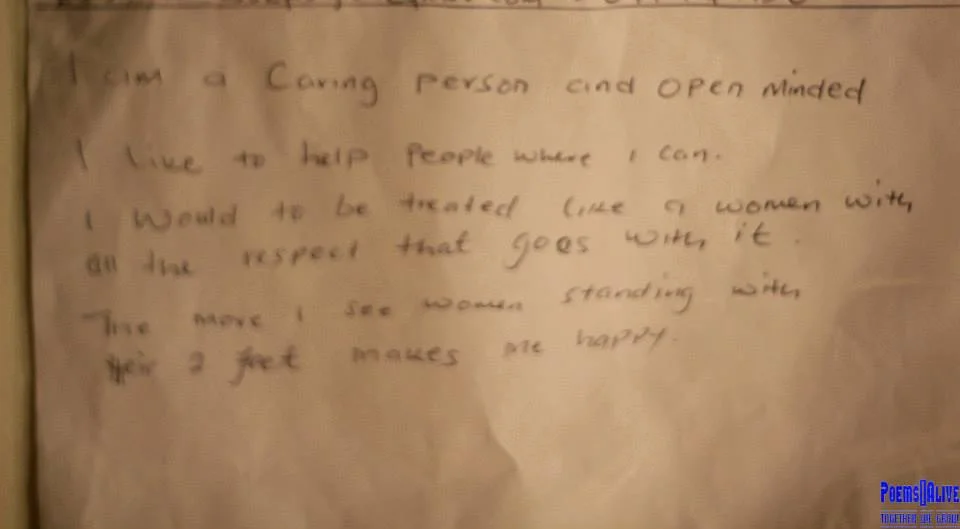 I am a Caring person and open minded
I like to help people where I can.
I would to be treated like a women with
all the respect that goes with it.
The more I see women standing with
their 2 feet makes me happy.
Poems[]Alive
Together we grow